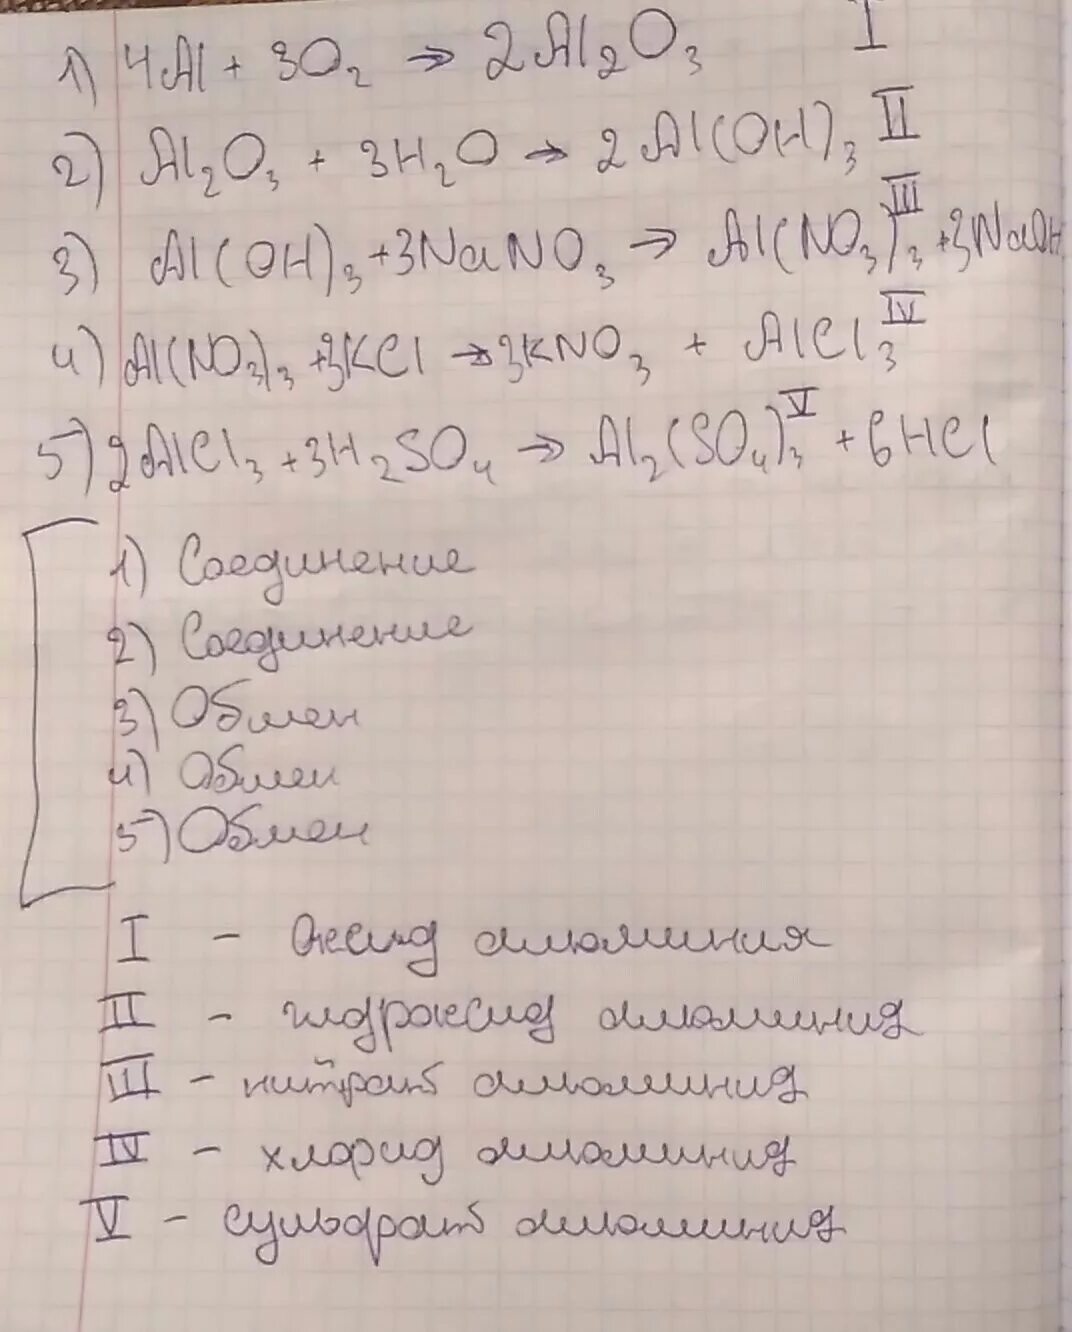 1) 4Al + 3O₂ → 2Al₂O₃ I
2) Al₂O₃ + 3H₂O → 2Al(OH)₃ II
3) Al(OH)₃ + 3NaNO₃ → Al(NO₃)₃ III + 3NaOH
4) Al(NO₃)₃ + 3KCl → 3KNO₃ + AlCl₃ IV
5) 2AlCl₃ + 3H₂SO₄ → Al₂(SO₄)₃ V + 6HCl
1) Соединение
2) Соединение
3) Обмен
4) Обмен
5) Обмен
I - Оксид алюминия
II - гидроксид алюминия
III - нитрат алюминия
IV - хлорид алюминия
V - сульфат алюминия